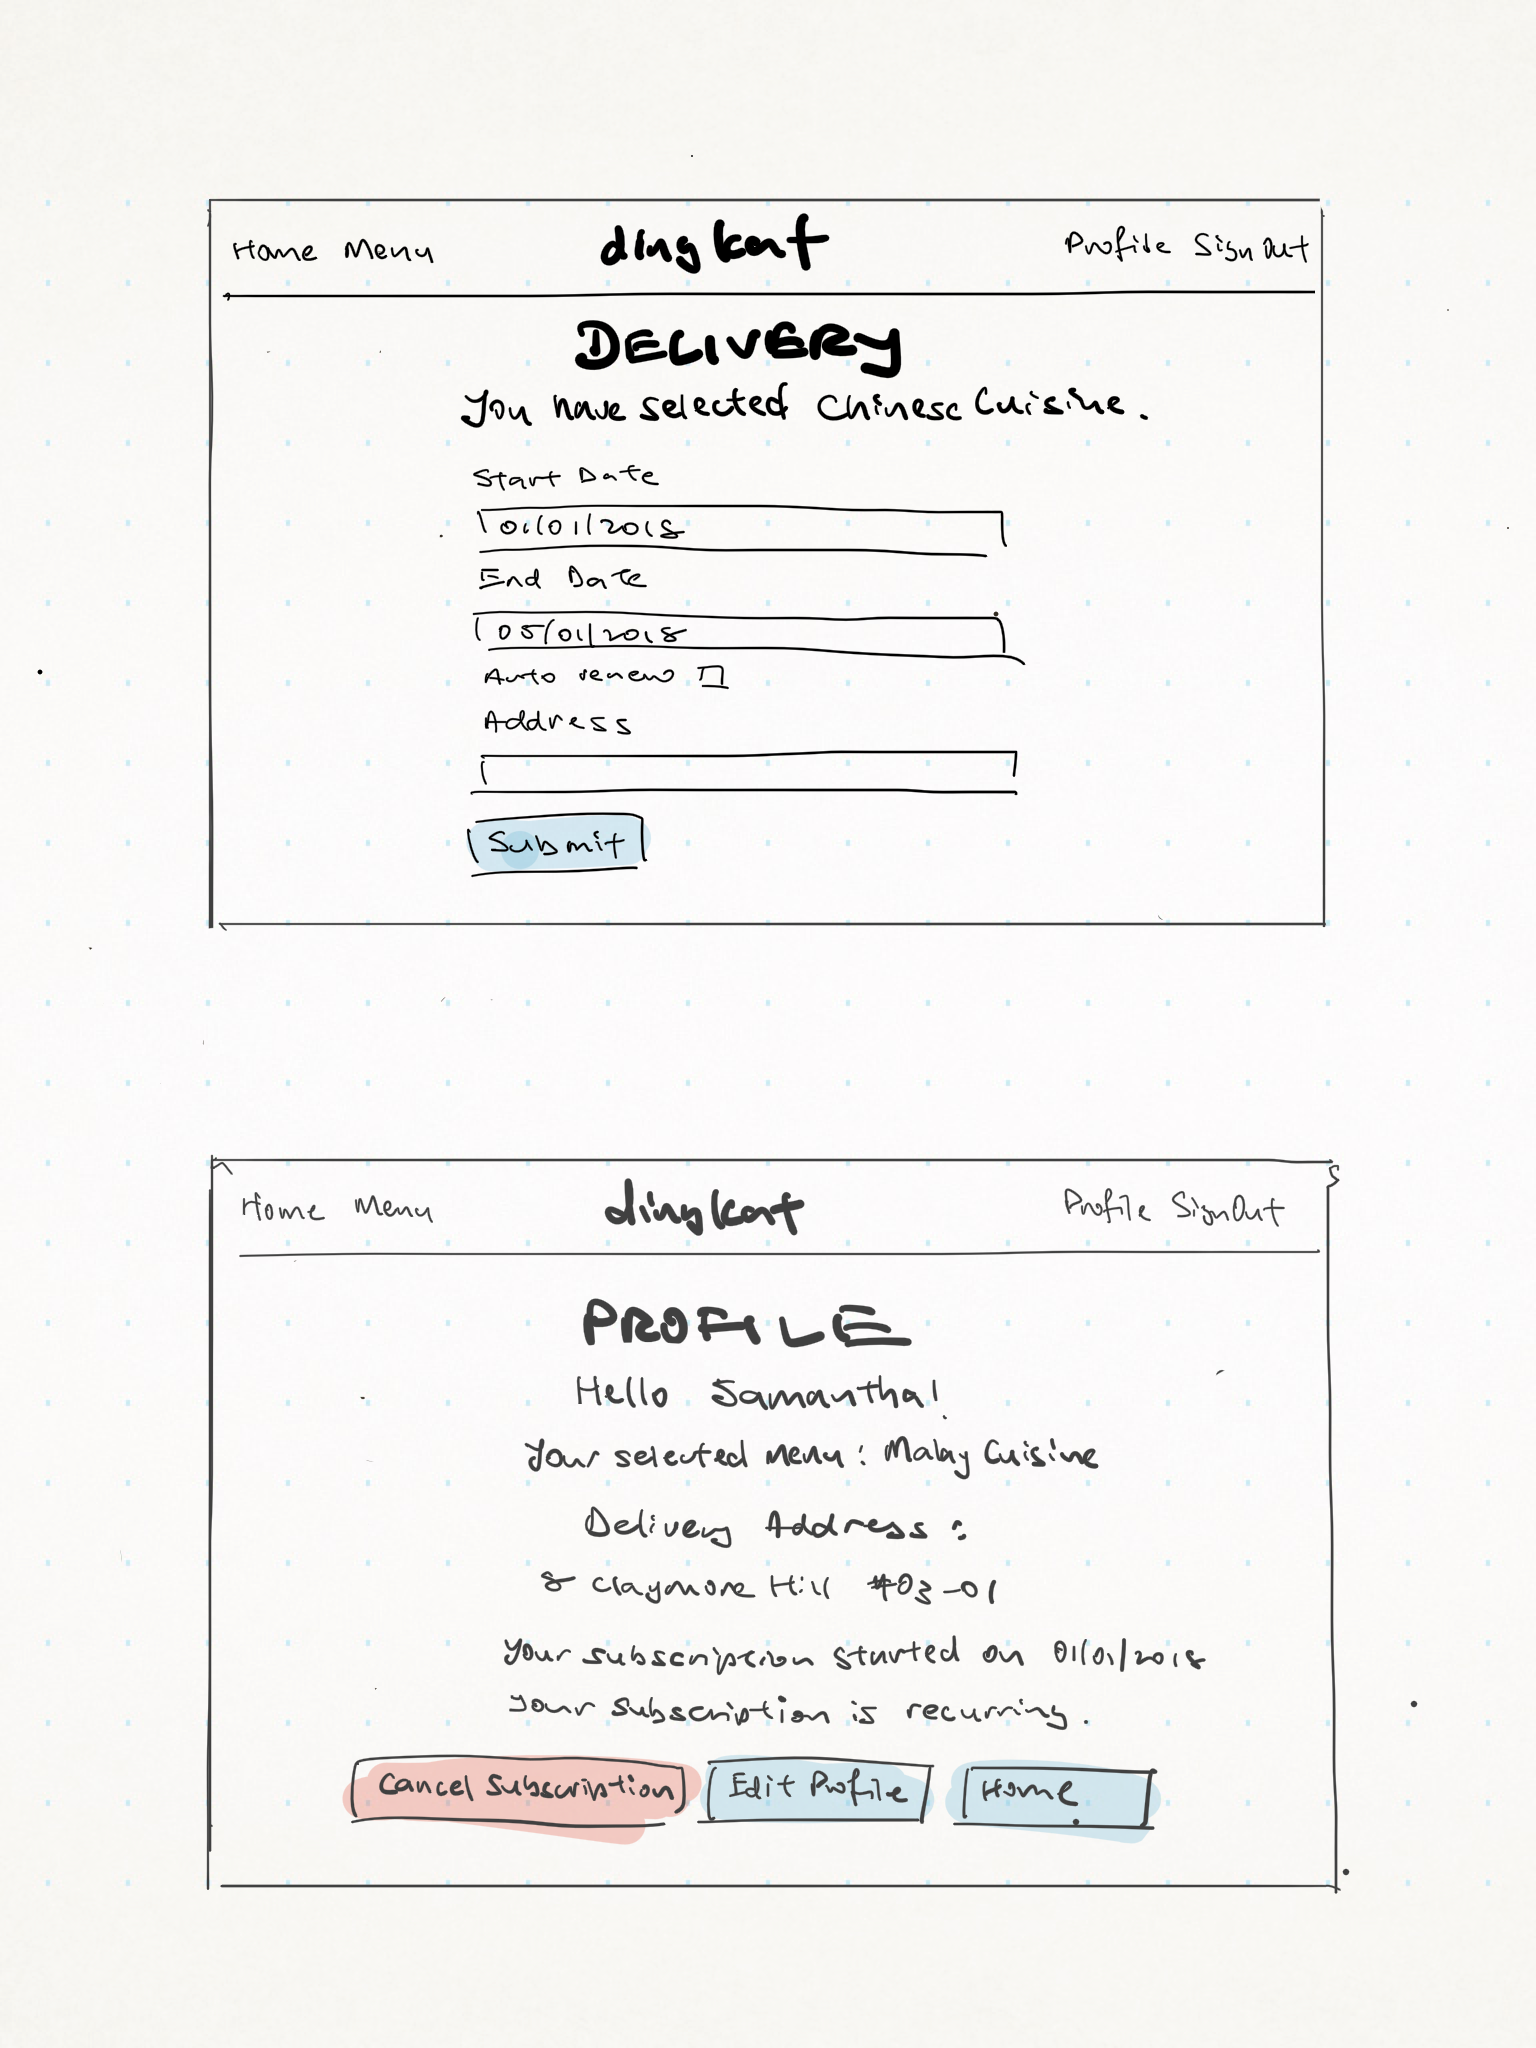 Home Menu dingkat Profile Sign Out
DELIVERY
You have selected Chinese Cuisine.
Start Date
01/01/2018
End Date
05/01/2018
Auto renew
Address
Submit
Home Menu dingkat Profile SignOut
PROFILE
Hello Samantha!
Your selected menu : Malay Cuisine
Delivery Address :
8 Claymore Hill #03-01
Your subscription started on 01/01/2018
Your subscription is recurring.
Cancel Subscription Edit Profile Home